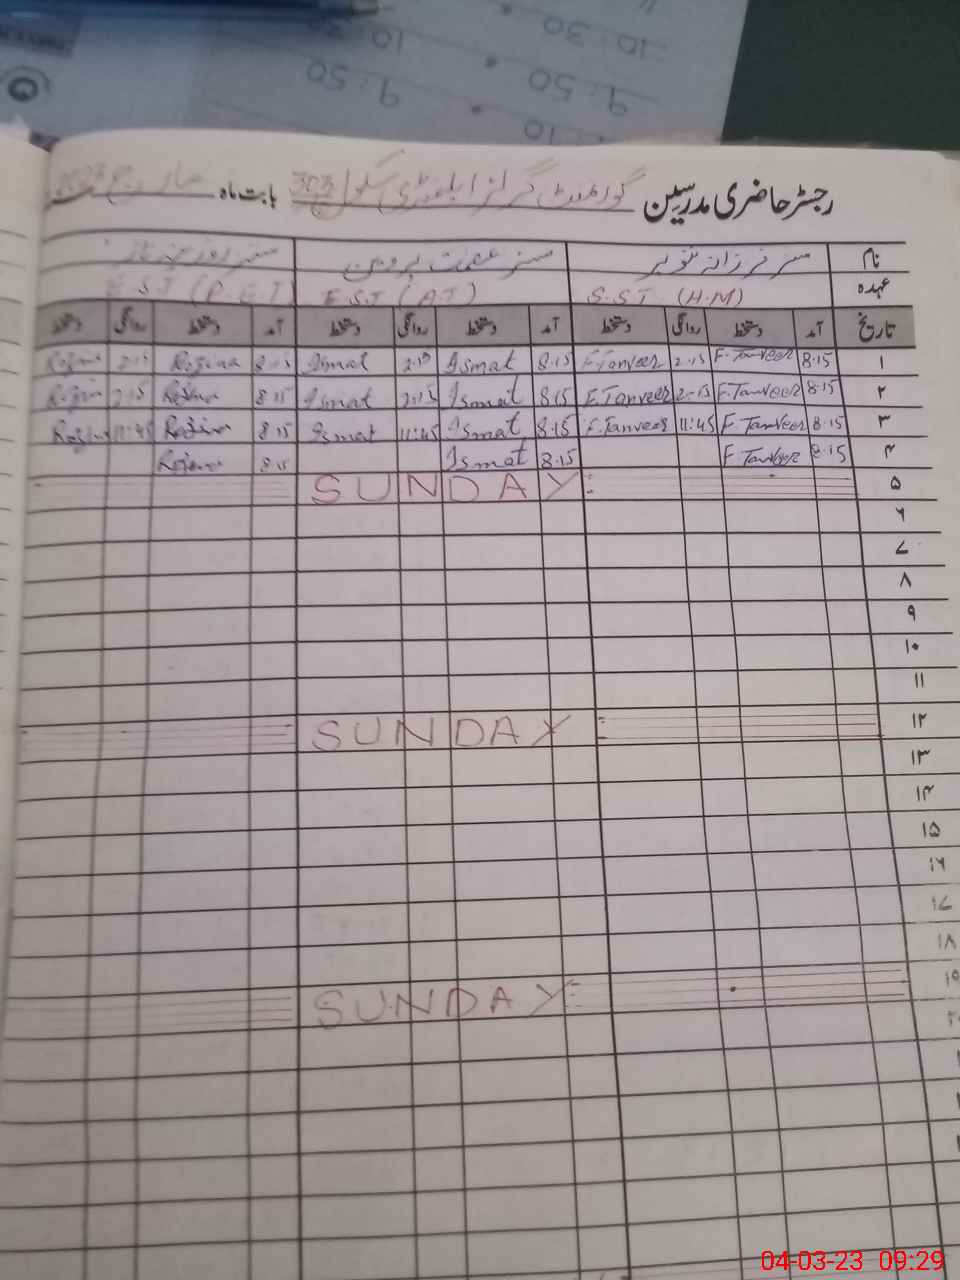 10:30
10:
9:50
9:50
10
رجسٹر حاضری مدرسین گورنمنٹ گرلز ایلمنٹری سکول 303 بابت ماہ مارچ 2023
نام مسز فرزانہ تنویر مسز عصمت پروین مسز روزینہ ناز
عہدہ S.S.T (H.M) E.S.T (A.T) E.S.T (P.E.T)
تاریخ آمد دستخط روانگی دستخط آمد دستخط روانگی دستخط آمد دستخط روانگی دستخط
۱ 8.15 F.Tanveer 2.15 F.Tanveer 8.15 Ismat 2.15 Ismat 8.15 Rozina 2.15 Rozina
۲ 8.15 F.Tanveer 2.15 F.Tanveer 8.15 Ismat 2.15 Ismat 8.15 Rozina 2.15 Rozina
۳ 8.15 F.Tanveer 11:45 F.Tanveer 8.15 Ismat 11:45 Ismat 8.15 Rozina 11:45 Rozina
۴ 8.15 F.Tanveer 8.15 Ismat 8.15 Rozina
۵ SUNDAY
۶
۷
۸
۹
۱۰
۱۱
۱۲ SUNDAY
۱۳
۱۴
۱۵
۱۶
۱۷
۱۸
۱۹ SUNDAY
۲۰
04-03-23 09:29